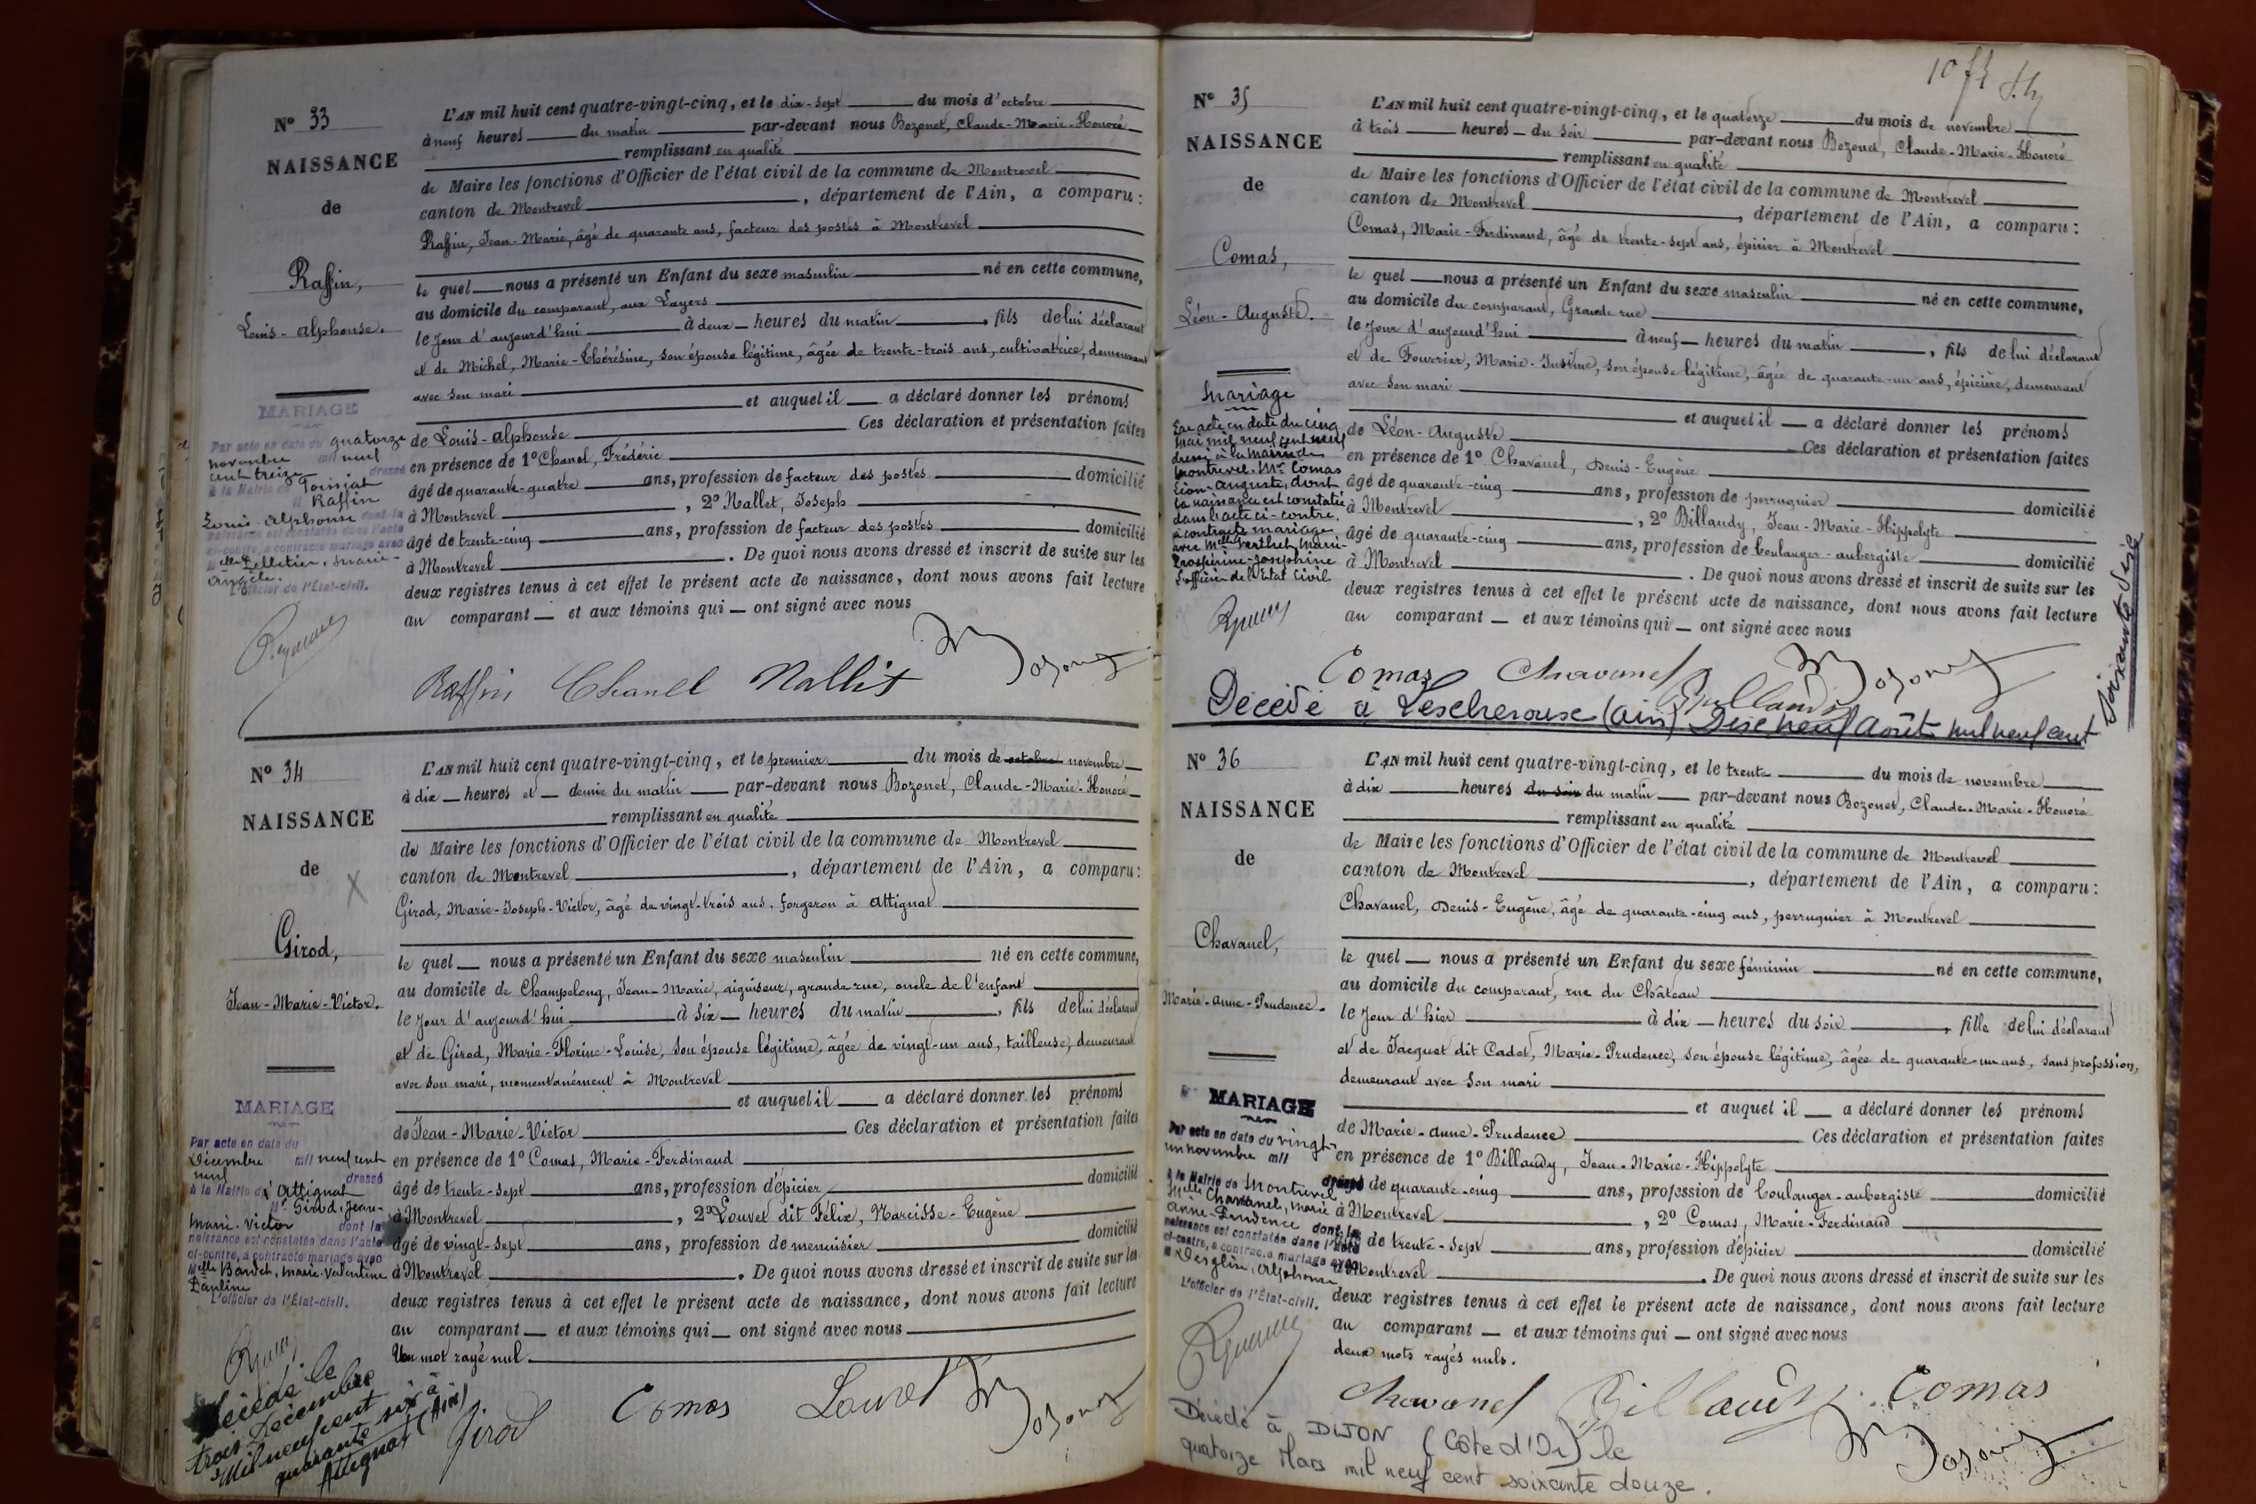 N° 33
NAISSANCE
de
Raffin,
Louis-Alphonse.
MARIAGE
Par acte en date du quatorze
novembre mil neuf
cent treize dressé
à la Mairie de Foissiat
M. Raffin
Louis-Alphonse dont la
naissance est constatée dans l'acte
ci-contre, a contracté mariage avec
Melle Pelletier, Marie-
Angèle.
L'officier de l'État-civil.
L'AN mil huit cent quatre-vingt-cinq, et le dix-sept du mois d'octobre
à neuf heures du matin par-devant nous Bozonet, Claude-Marie-Honoré
remplissant en qualité
de Maire les fonctions d'Officier de l'état civil de la commune de Montrevel
canton de Montrevel, département de l'Ain, a comparu:
Raffin, Jean-Marie, âgé de quarante ans, facteur des postes à Montrevel
le quel nous a présenté un Enfant du sexe masculin né en cette commune,
au domicile du comparant, aux Layers
le jour d'aujourd'hui à deux heures du matin, fils de lui déclarant
et de Michel, Marie-Thérésine, son épouse légitime, âgée de trente-trois ans, cultivatrice, demeurant
avec son mari
et auquel il a déclaré donner les prénoms
de Louis-Alphonse Ces déclaration et présentation faites
en présence de 1° Chanel, Frédéric
âgé de quarante-quatre ans, profession de facteur des postes domicilié
à Montrevel, 2° Nallet, Joseph
âgé de trente-cinq ans, profession de facteur des postes domicilié
à Montrevel. De quoi nous avons dressé et inscrit de suite sur les
deux registres tenus à cet effet le présent acte de naissance, dont nous avons fait lecture
au comparant et aux témoins qui ont signé avec nous
Raffin Chanel Nallet Bozonet
N° 34
NAISSANCE
de
X
Girod,
Jean-Marie-Victor.
MARIAGE
Par acte en date du
Décembre mil neuf cent
neuf dressé
à la Mairie d'Attignat
M. Girod, Jean-
Marie-Victor dont la
naissance est constatée dans l'acte
ci-contre, a contracté mariage avec
Melle Bardet, Marie-Valentine
Pauline
L'officier de l'État-civil.
Décédé le
trois Décembre
Mil neuf cent
quarante six à
Attignat (Ain)
L'AN mil huit cent quatre-vingt-cinq, et le premier du mois de octobre novembre
à dix heures et demie du matin par-devant nous Bozonet, Claude-Marie-Honoré
remplissant en qualité
de Maire les fonctions d'Officier de l'état civil de la commune de Montrevel
canton de Montrevel, département de l'Ain, a comparu:
Girod, Marie-Joseph-Victor, âgé de vingt-trois ans, forgeron à Attignat
le quel nous a présenté un Enfant du sexe masculin né en cette commune,
au domicile de Champelong, Jean-Marie, aiguiseur, grande rue, oncle de l'enfant
le jour d'aujourd'hui à six heures du matin, fils de lui déclarant
et de Girod, Marie-Florine-Louise, son épouse légitime, âgée de vingt-un ans, tailleuse, demeurant
avec son mari, momentanément à Montrevel
et auquel il a déclaré donner les prénoms
de Jean-Marie-Victor Ces déclaration et présentation faites
en présence de 1° Comas, Marie-Ferdinand
âgé de trente-sept ans, profession d'épicier domicilié
à Montrevel, 2° Louvet dit Félix, Narcisse-Eugène
âgé de vingt-sept ans, profession de menuisier domicilié
à Montrevel. De quoi nous avons dressé et inscrit de suite sur les
deux registres tenus à cet effet le présent acte de naissance, dont nous avons fait lecture
au comparant et aux témoins qui ont signé avec nous
Un mot rayé nul.
Girod Comas Louvet Bozonet
N° 35
NAISSANCE
de
Comas,
Léon-Auguste.
Mariage
Par acte en date du cinq
mai mil neuf cent neuf
dressé à la Mairie de
Montrevel, Mr Comas
Léon-Auguste, dont
la naissance est constatée
dans l'acte ci-contre,
a contracté mariage
avec Melle Berthet, Marie-
Prospérine-Joséphine
L'officier de l'Etat civil
L'AN mil huit cent quatre-vingt-cinq, et le quatorze du mois de novembre
à trois heures du soir par-devant nous Bozonet, Claude-Marie-Honoré
remplissant en qualité
de Maire les fonctions d'Officier de l'état civil de la commune de Montrevel
canton de Montrevel, département de l'Ain, a comparu:
Comas, Marie-Ferdinand, âgé de trente-sept ans, épicier à Montrevel
le quel nous a présenté un Enfant du sexe masculin né en cette commune,
au domicile du comparant, Grande rue
le jour d'aujourd'hui à neuf heures du matin, fils de lui déclarant
et de Fourrier, Marie-Justine, son épouse légitime, âgée de quarante-un ans, épicière, demeurant
avec son mari
et auquel il a déclaré donner les prénoms
de Léon-Auguste Ces déclaration et présentation faites
en présence de 1° Chavanel, Denis-Eugène
âgé de quarante-cinq ans, profession de perruquier domicilié
à Montrevel, 2° Billaudy, Jean-Marie-Hippolyte
âgé de quarante-cinq ans, profession de boulanger-aubergiste domicilié
à Montrevel. De quoi nous avons dressé et inscrit de suite sur les
deux registres tenus à cet effet le présent acte de naissance, dont nous avons fait lecture
au comparant et aux témoins qui ont signé avec nous
Comas Chavanel Billaudy Bozonet
Décédé à Lescheroux (Ain) Dix neuf Août mil neuf cent
soixante six
N° 36
NAISSANCE
de
Chavanel,
Marie-Anne-Prudence.
MARIAGE
Par acte en date du vingt-
un novembre mil
dressé
à la Mairie de Montrevel
Melle Chavanel, Marie
Anne-Prudence dont la
naissance est constatée dans l'acte
ci-contre, a contracté mariage avec
M Desglin, Alphonse
L'officier de l'État-civil.
L'AN mil huit cent quatre-vingt-cinq, et le trente du mois de novembre
à dix heures du soir du matin par-devant nous Bozonet, Claude-Marie-Honoré
remplissant en qualité
de Maire les fonctions d'Officier de l'état civil de la commune de Montrevel
canton de Montrevel, département de l'Ain, a comparu:
Chavanel, Denis-Eugène, âgé de quarante-cinq ans, perruquier à Montrevel
le quel nous a présenté un Enfant du sexe féminin né en cette commune,
au domicile du comparant, rue du Château
le jour d'hier à dix heures du soir, fille de lui déclarant
et de Jacquet dit Cadet, Marie-Prudence, son épouse légitime, âgée de quarante-un ans, sans profession,
demeurant avec son mari
et auquel il a déclaré donner les prénoms
de Marie-Anne-Prudence Ces déclaration et présentation faites
en présence de 1° Billaudy, Jean-Marie-Hippolyte
âgé de quarante-cinq ans, profession de boulanger-aubergiste domicilié
à Montrevel, 2° Comas, Marie-Ferdinand
âgé de trente-sept ans, profession d'épicier domicilié
à Montrevel. De quoi nous avons dressé et inscrit de suite sur les
deux registres tenus à cet effet le présent acte de naissance, dont nous avons fait lecture
au comparant et aux témoins qui ont signé avec nous
deux mots rayés nuls.
Chavanel Billaudy Comas
Bozonet
Décédé à DIJON (Côte d'Or) le
quatorze Mars mil neuf cent soixante douze.